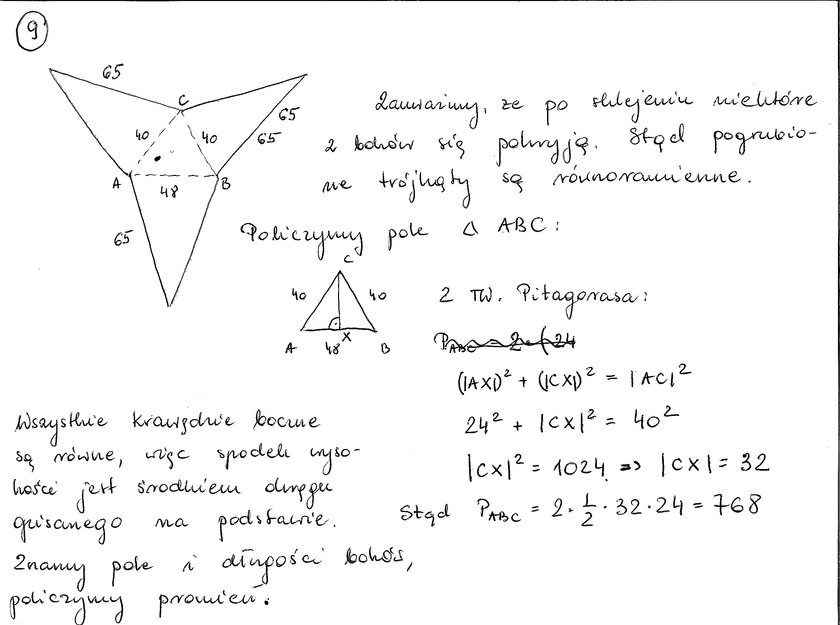 9
65
C
65
65
40
40
A
48
B
65
Zauważmy, że po sklejeniu niektóre
z boków się pokryją. Stąd pogrubio-
ne trójkąty są równoramienne.
Policzymy pole Δ ABC:
C
40
40
A
48
X
B
Z TW. Pitagorasa:
P_ABC = 2·(24
(|AX|)² + (|CX|)² = |AC|²
24² + |CX|² = 40²
|CX|² = 1024 => |CX| = 32
Stąd P_ABC = 2·½·32·24 = 768
Wszystkie krawędzie boczne
są równe, więc spodek wyso-
kości jest środkiem okręgu
opisanego na podstawie.
Znamy pole i długości boków,
policzymy promień: